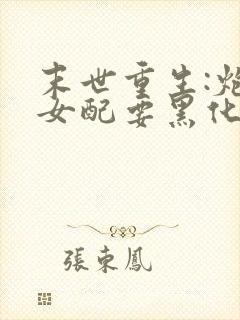 末世重生:炮
女配要黑化
張東鳳